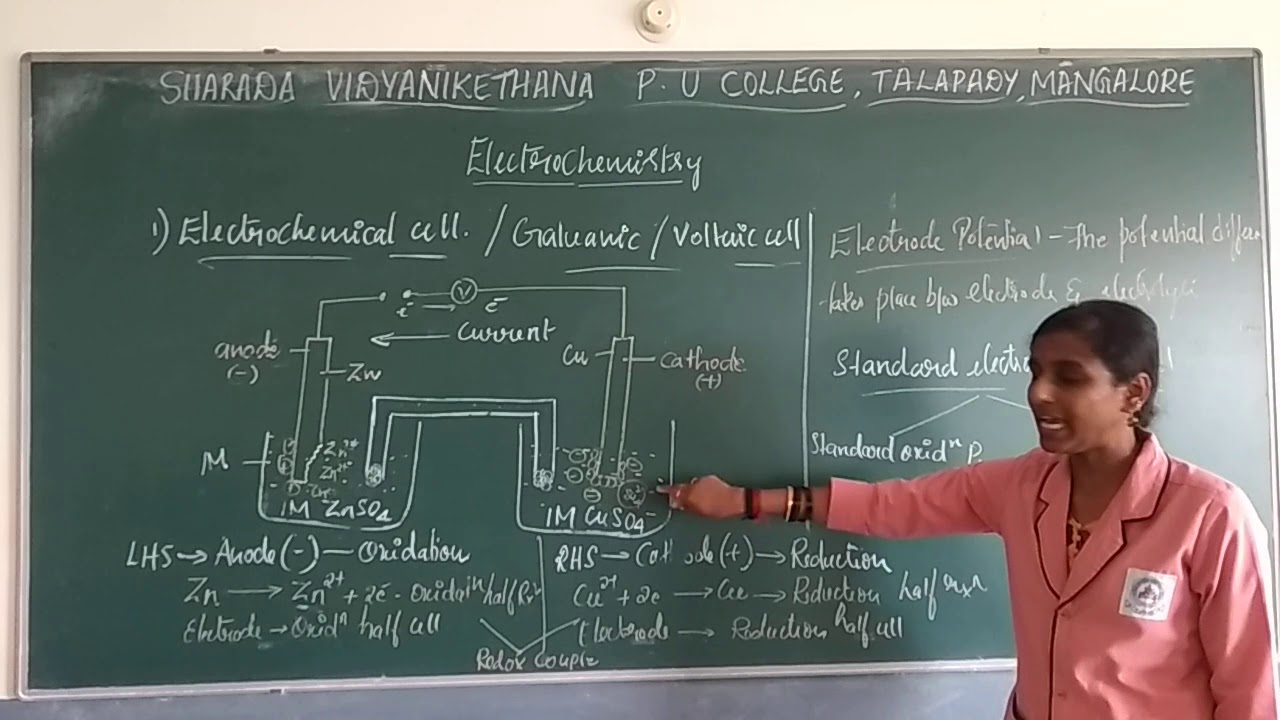 SHARADA VIDYANIKETHANA P.U COLLEGE, TALAPADY, MANGALORE
Electrochemistry
1) Electrochemical cell. / Galvanic / Voltaic cell
V
e⁻
Current
anode
(-)
Zn
Cu
Cathode
(+)
M
Zn²⁺
Zn²⁺
1M ZnSO₄
1M CuSO₄
LHS → Anode (-) — Oxidation
Zn → Zn²⁺ + 2e⁻ - Oxidatⁿ half Rxⁿ
Electrode → Oxidⁿ half cell
RHS → Cathode (+) → Reduction
Cu²⁺ + 2e → Cu → Reduction half rxn
Electrode → Reduction half cell
Redox Couple
Electrode Potential - The potential differen
takes place b/w electrode & electrolyte
Standard electro
Standard oxidⁿ P.